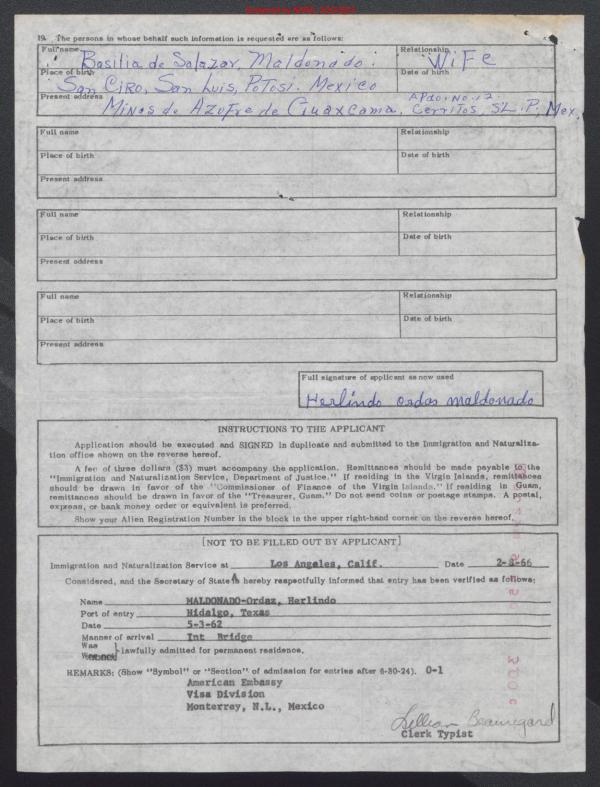 19. The persons in whose behalf such information is requested are as follows:
Full name Basilia de Salazar Maldonado. Relationship WiFe
Place of birth San CiRo, San Luis, PoTosi. Mexico Date of birth
Present address Minas de Azufre de Guaxcama. APdo. No. 12. Cerritos, S.L.P. Mex.
Full name Relationship
Place of birth Date of birth
Present address
Full name Relationship
Place of birth Date of birth
Present address
Full name Relationship
Place of birth Date of birth
Present address
Full signature of applicant as now used
Herlindo ordas maldonado
INSTRUCTIONS TO THE APPLICANT
Application should be executed and SIGNED in duplicate and submitted to the Immigration and Naturaliza-
tion office shown on the reverse hereof.
A fee of three dollars ($3) must accompany the application. Remittances should be made payable to the
"Immigration and Naturalization Service, Department of Justice." If residing in the Virgin Islands, remittances
should be drawn in favor of the "Commissioner of Finance of the Virgin Islands." If residing in Guam,
remittances should be drawn in favor of the "Treasurer, Guam." Do not send coins or postage stamps. A postal,
express, or bank money order or equivalent is preferred.
Show your Alien Registration Number in the block in the upper right-hand corner on the reverse hereof.
[NOT TO BE FILLED OUT BY APPLICANT]
Immigration and Naturalization Service at Los Angeles, Calif. Date 2-8-66
Considered, and the Secretary of State is hereby respectfully informed that entry has been verified as follows:
Name MALDONADO-Ordaz, Herlindo
Port of entry Hidalgo, Texas
Date 5-3-62
Manner of arrival Int Bridge
Was
Was not } lawfully admitted for permanent residence.
REMARKS: (Show "Symbol" or "Section" of admission for entries after 6-30-24). O-1
American Embassy
Visa Division
Monterrey, N.L., Mexico
Lillian Beauregard
Clerk Typist